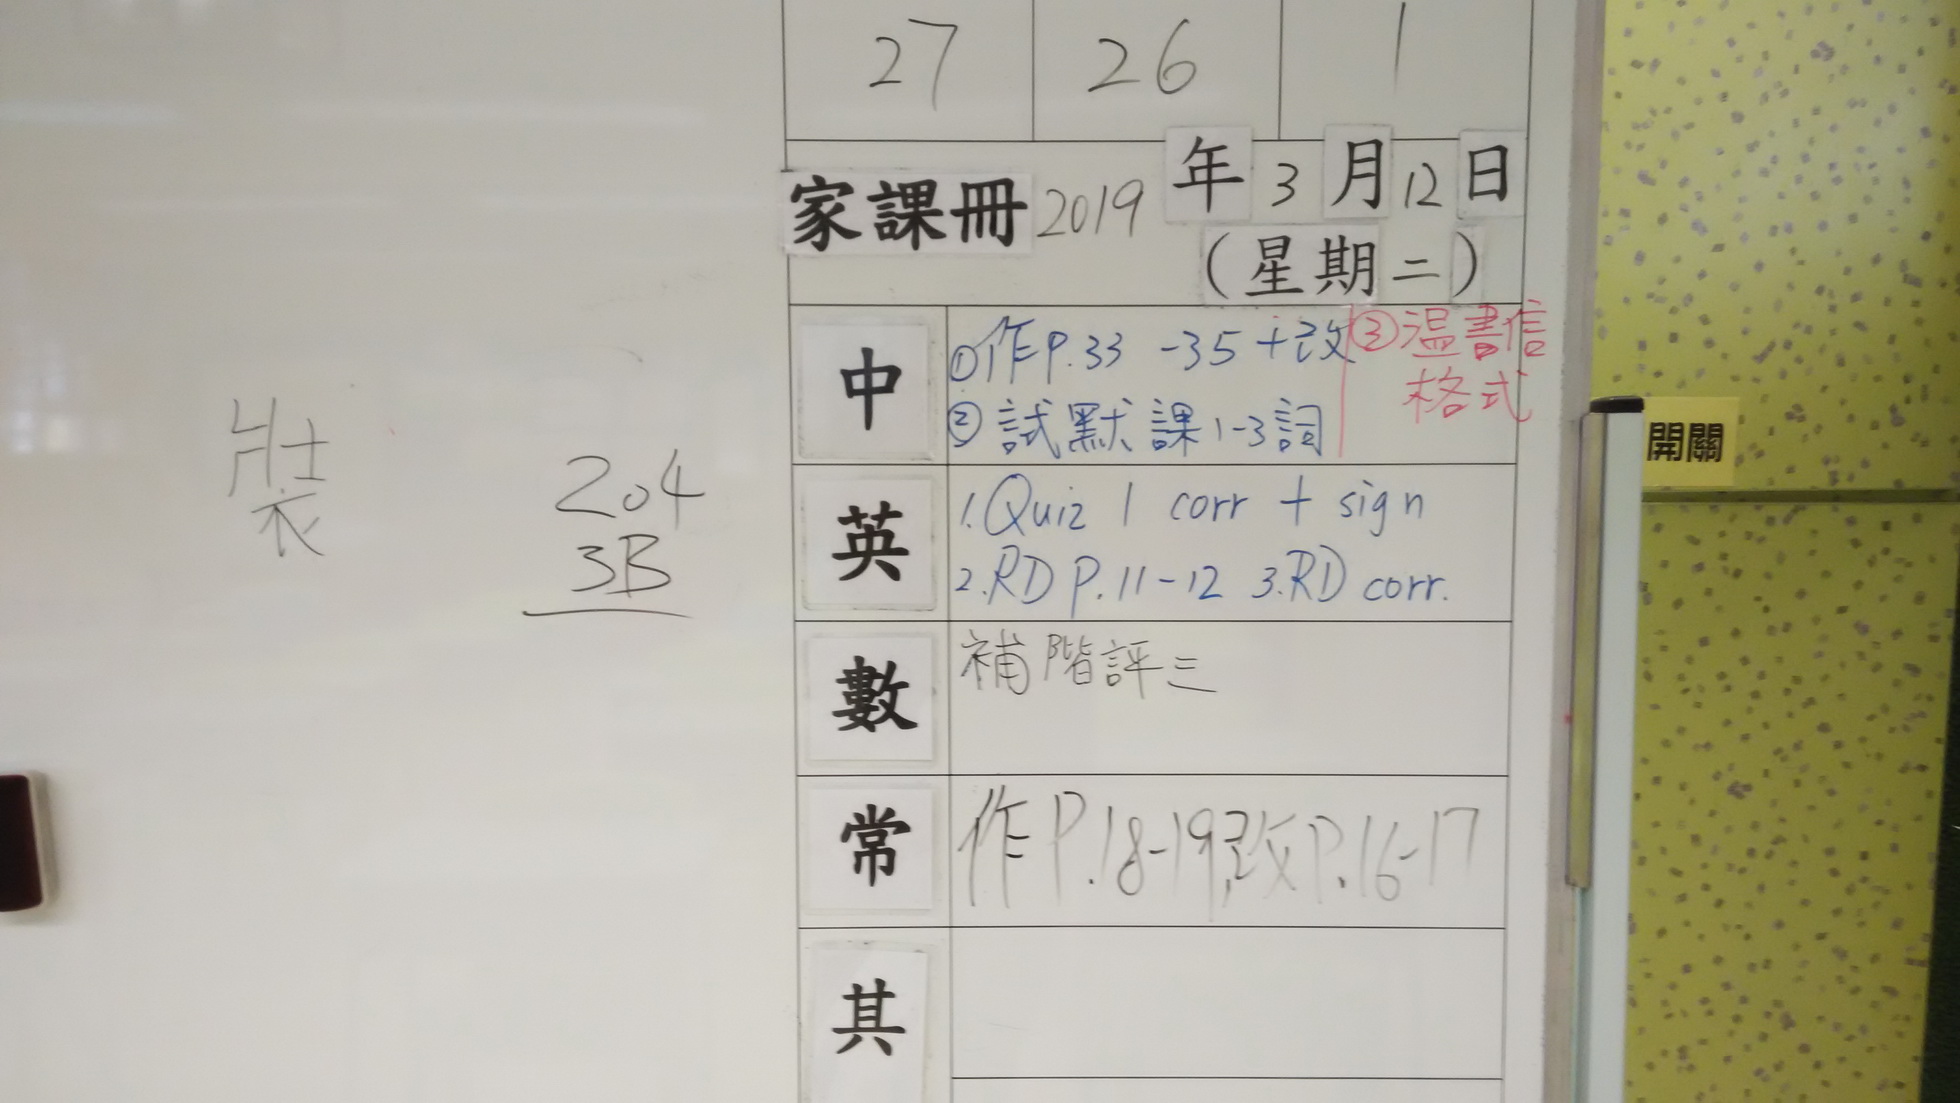 27 26 1
家課冊 2019 年 3 月 12 日
（星期二）
中
①作P.33 -35 + 改
②試默課1-3詞
③温書信
格式
英
1. Quiz 1 corr + sign
2. RD P.11-12 3. RD corr.
數
補階評三
常
作P.18-19,改P.16-17
其
裝
204
3B
開關